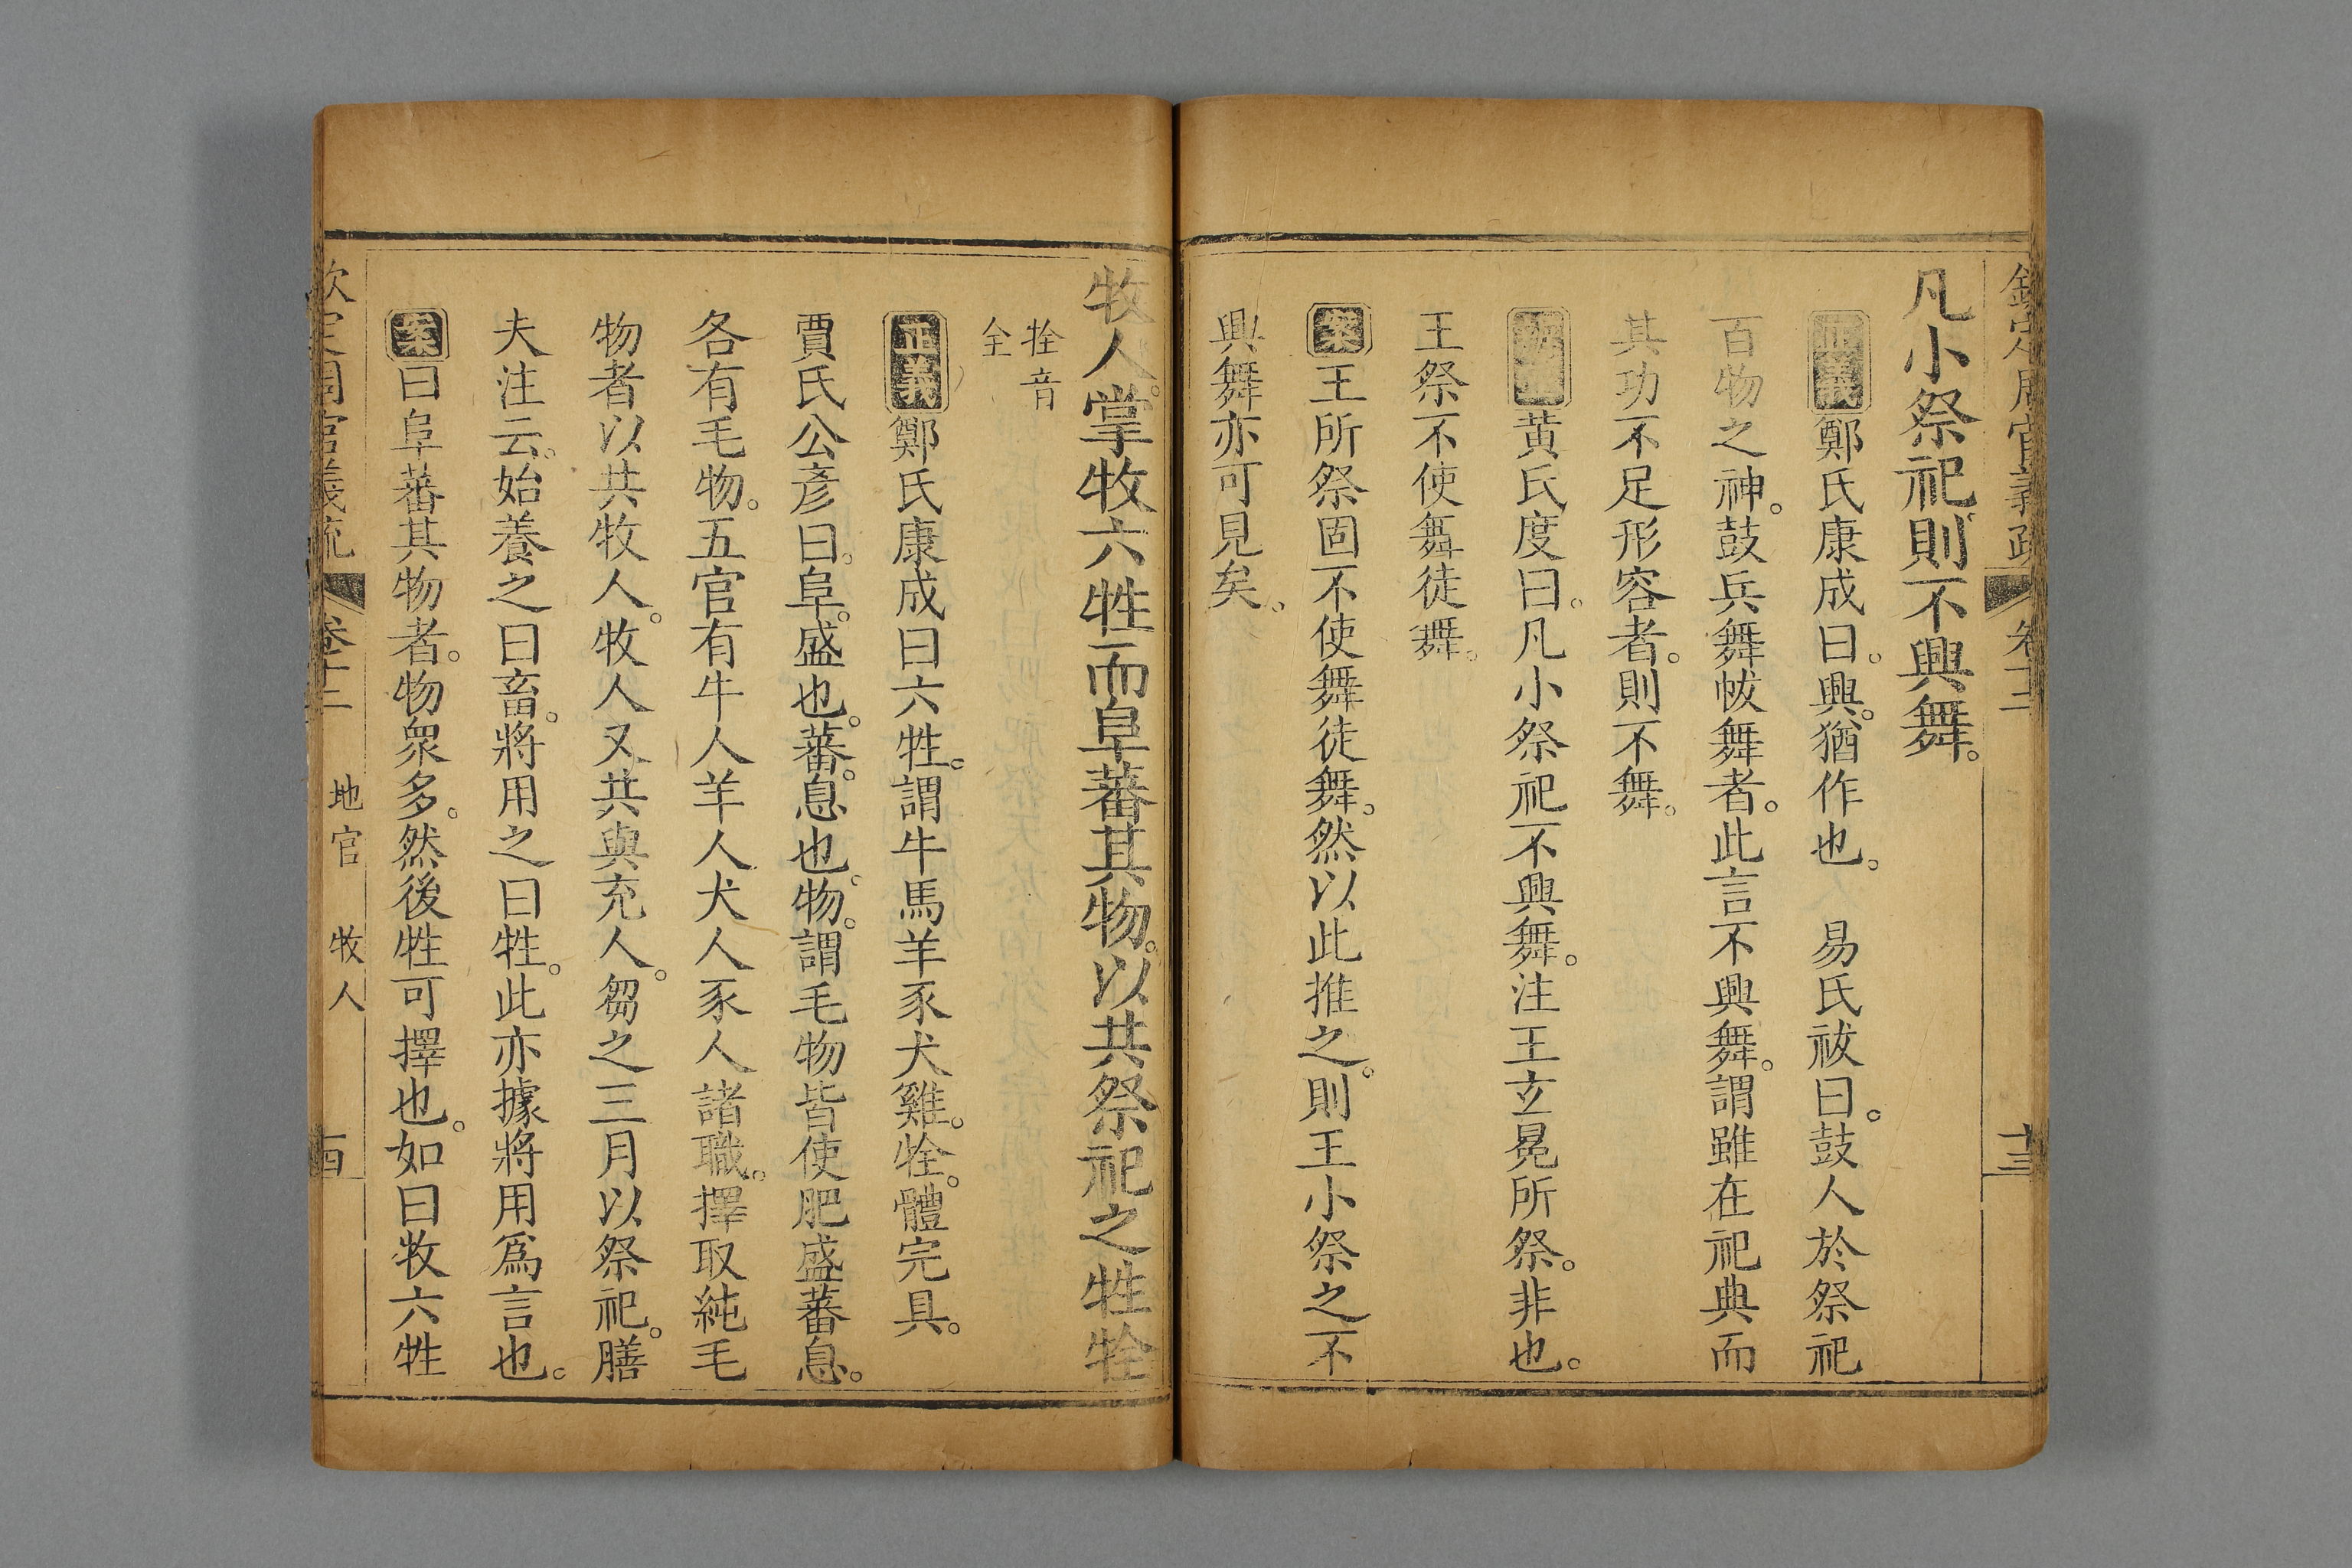 欽定周官義疏 卷十二 十三
凡小祭祀。則不興舞。
正義鄭氏康成曰。興。猶作也。 易氏祓曰。鼓人於祭祀
百物之神。鼓兵舞帗舞者。此言不興舞。謂雖在祀典而
其功不足形容者。則不舞。
黃氏度曰。凡小祭祀不興舞。注王玄冕所祭。非也。
王祭不使舞徒舞。
案王所祭固不使舞徒舞。然以此推之。則王小祭之不
興舞亦可見矣。
牧人。掌牧六牲而阜蕃其物。以共祭祀之牲牷
牷音
全
正義鄭氏康成曰六牲。謂牛馬羊豕犬雞。牷。體完具。
賈氏公彥曰。阜。盛也。蕃。息也。物。謂毛物皆使肥盛蕃息。
各有毛物。五官有牛人羊人犬人豕人諸職。擇取純毛
物者以共牧人。牧人又共與充人。芻之三月以祭祀。膳
夫注云。始養之曰畜。將用之曰牲。此亦據將用爲言也。
案曰阜蕃其物者。物衆多。然後牲可擇也。如曰牧六牲
欽定周官義疏 卷十二 地官 牧人